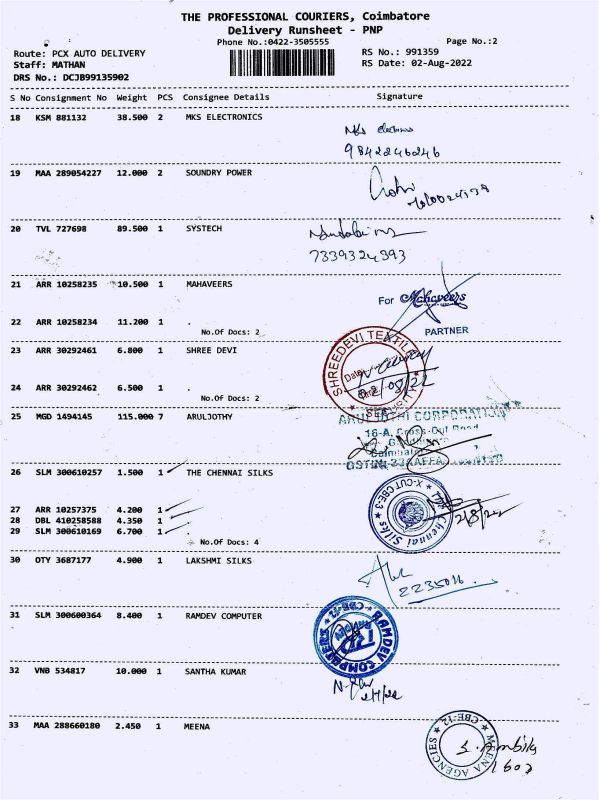 THE PROFESSIONAL COURIERS, Coimbatore
Delivery Runsheet - PNP
Phone No.:0422-3505555
Page No.:2
Route: PCX AUTO DELIVERY
RS No.: 991359
Staff: MATHAN
RS Date: 02-Aug-2022
DRS No.: DCJB99135902
S No Consignment No Weight PCS Consignee Details Signature
18 KSM 881132 38.500 2 MKS ELECTRONICS
9842246246
19 MAA 289054227 12.000 2 SOUNDRY POWER
20 TVL 727698 89.500 1 SYSTECH
7339324393
21 ARR 10258235 10.500 1 MAHAVEERS
For Mahaveers
22 ARR 10258234 11.200 1
No.Of Docs: 2
PARTNER
23 ARR 30292461 6.800 1 SHREE DEVI
SHREEDEVI TEXTILE
Date
24 ARR 30292462 6.500 1
No.Of Docs: 2
25 MGD 1494145 115.000 7 ARULJOTHY
CORPORATION
16-A, Cross-Cut Road
26 SLM 300610257 1.500 1 THE CHENNAI SILKS
X-CUT CBE-3
Chennai Silks
27 ARR 10257375 4.200 1
28 DBL 410258588 4.350 1
2/8/22
29 SLM 300610169 6.700 1
No.Of Docs: 4
30 OTY 3687177 4.900 1 LAKSHMI SILKS
2235016
31 SLM 300600364 8.400 1 RAMDEV COMPUTER
RAMDEV COMPUTERS
CBE-12
32 VNB 534817 10.000 1 SANTHA KUMAR
33 MAA 288660180 2.450 1 MEENA
CBE-12
MEENA AGENCIES
S. Ambika
1602